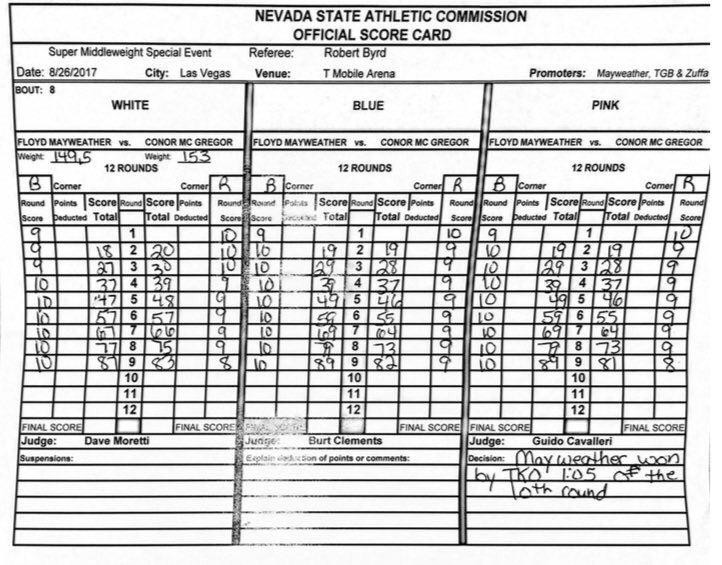 NEVADA STATE ATHLETIC COMMISSION
OFFICIAL SCORE CARD
Super Middleweight Special Event Referee: Robert Byrd
Date: 8/26/2017 City: Las Vegas Venue: T Mobile Arena Promoters: Mayweather, TGB & Zuffa
BOUT: 8
WHITE BLUE PINK
FLOYD MAYWEATHER vs. CONOR MC GREGOR FLOYD MAYWEATHER vs. CONOR MC GREGOR FLOYD MAYWEATHER vs. CONOR MC GREGOR
Weight: 149.5 Weight: 153
12 ROUNDS 12 ROUNDS 12 ROUNDS
B Corner Corner R B Corner Corner R B Corner Corner R
Round Points Score Round Score Points Round Round Points Score Round Score Points Round Round Points Score Round Score Points Round
Score Deducted Total Total Deducted Score Score Deducted Total Total Deducted Score Score Deducted Total Total Deducted Score
9 1 10 9 1 10 9 1 10
9 18 2 20 10 10 19 2 19 9 10 19 2 19 9
9 27 3 30 10 10 29 3 28 9 10 29 3 28 9
10 37 4 39 9 10 39 4 37 9 10 39 4 37 9
10 47 5 48 9 10 49 5 46 9 10 49 5 46 9
10 57 6 57 9 10 59 6 55 9 10 59 6 55 9
10 67 7 66 9 10 69 7 64 9 10 69 7 64 9
10 77 8 75 9 10 79 8 73 9 10 79 8 73 9
10 87 9 83 8 10 89 9 82 9 10 89 9 81 8
10 10 10
11 11 11
12 12 12
FINAL SCORE FINAL SCORE FINAL SCORE FINAL SCORE FINAL SCORE
Judge: Dave Moretti Judge: Burt Clements Judge: Guido Cavalleri
Suspensions: Explain deduction of points or comments: Decision: Mayweather won
by TKO 1:05 of the
10th round